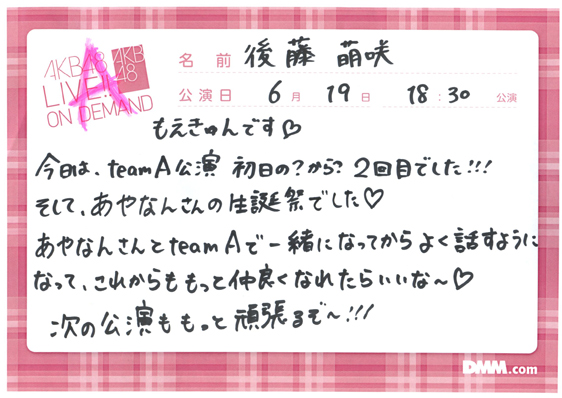 AKB48
LIVE!!
ON DEMAND
AKB
48
A
名前 後藤 萌咲
公演日 6月 19日 18:30 公演
もえきゅんです♡
今日は、teamA公演 初日の?から? 2回目でした!!!
そして、あやなんさんの生誕祭でした♡
あやなんさんとteamAで一緒になってからよく話すように
なって、これからももっと仲良くなれたらいいな〜♡
次の公演ももっと頑張るぞ〜!!!
DMM.com